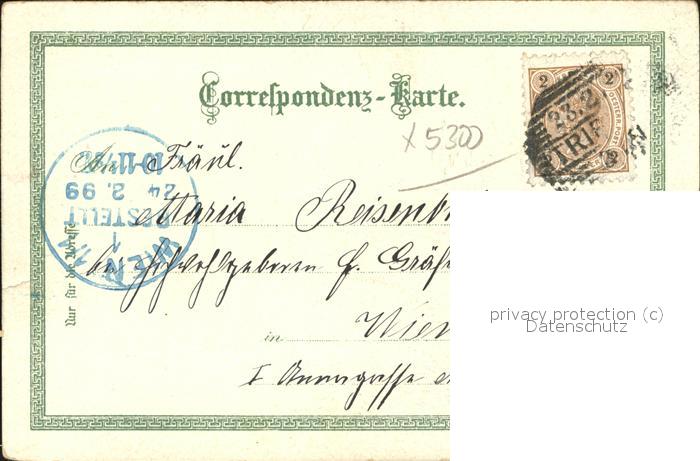 Correspondenz-Karte.
2 2
OESTERR. POST
23.2
2
x 5300
An Fräul.
Maria Reisenb
bei Hochwohlgeboren f. Gräf
in Wien
I Annagasse
Nur für die Adresse
WIEN
1
BESTELLT
24 2. 99
privacy protection (c)
Datenschutz